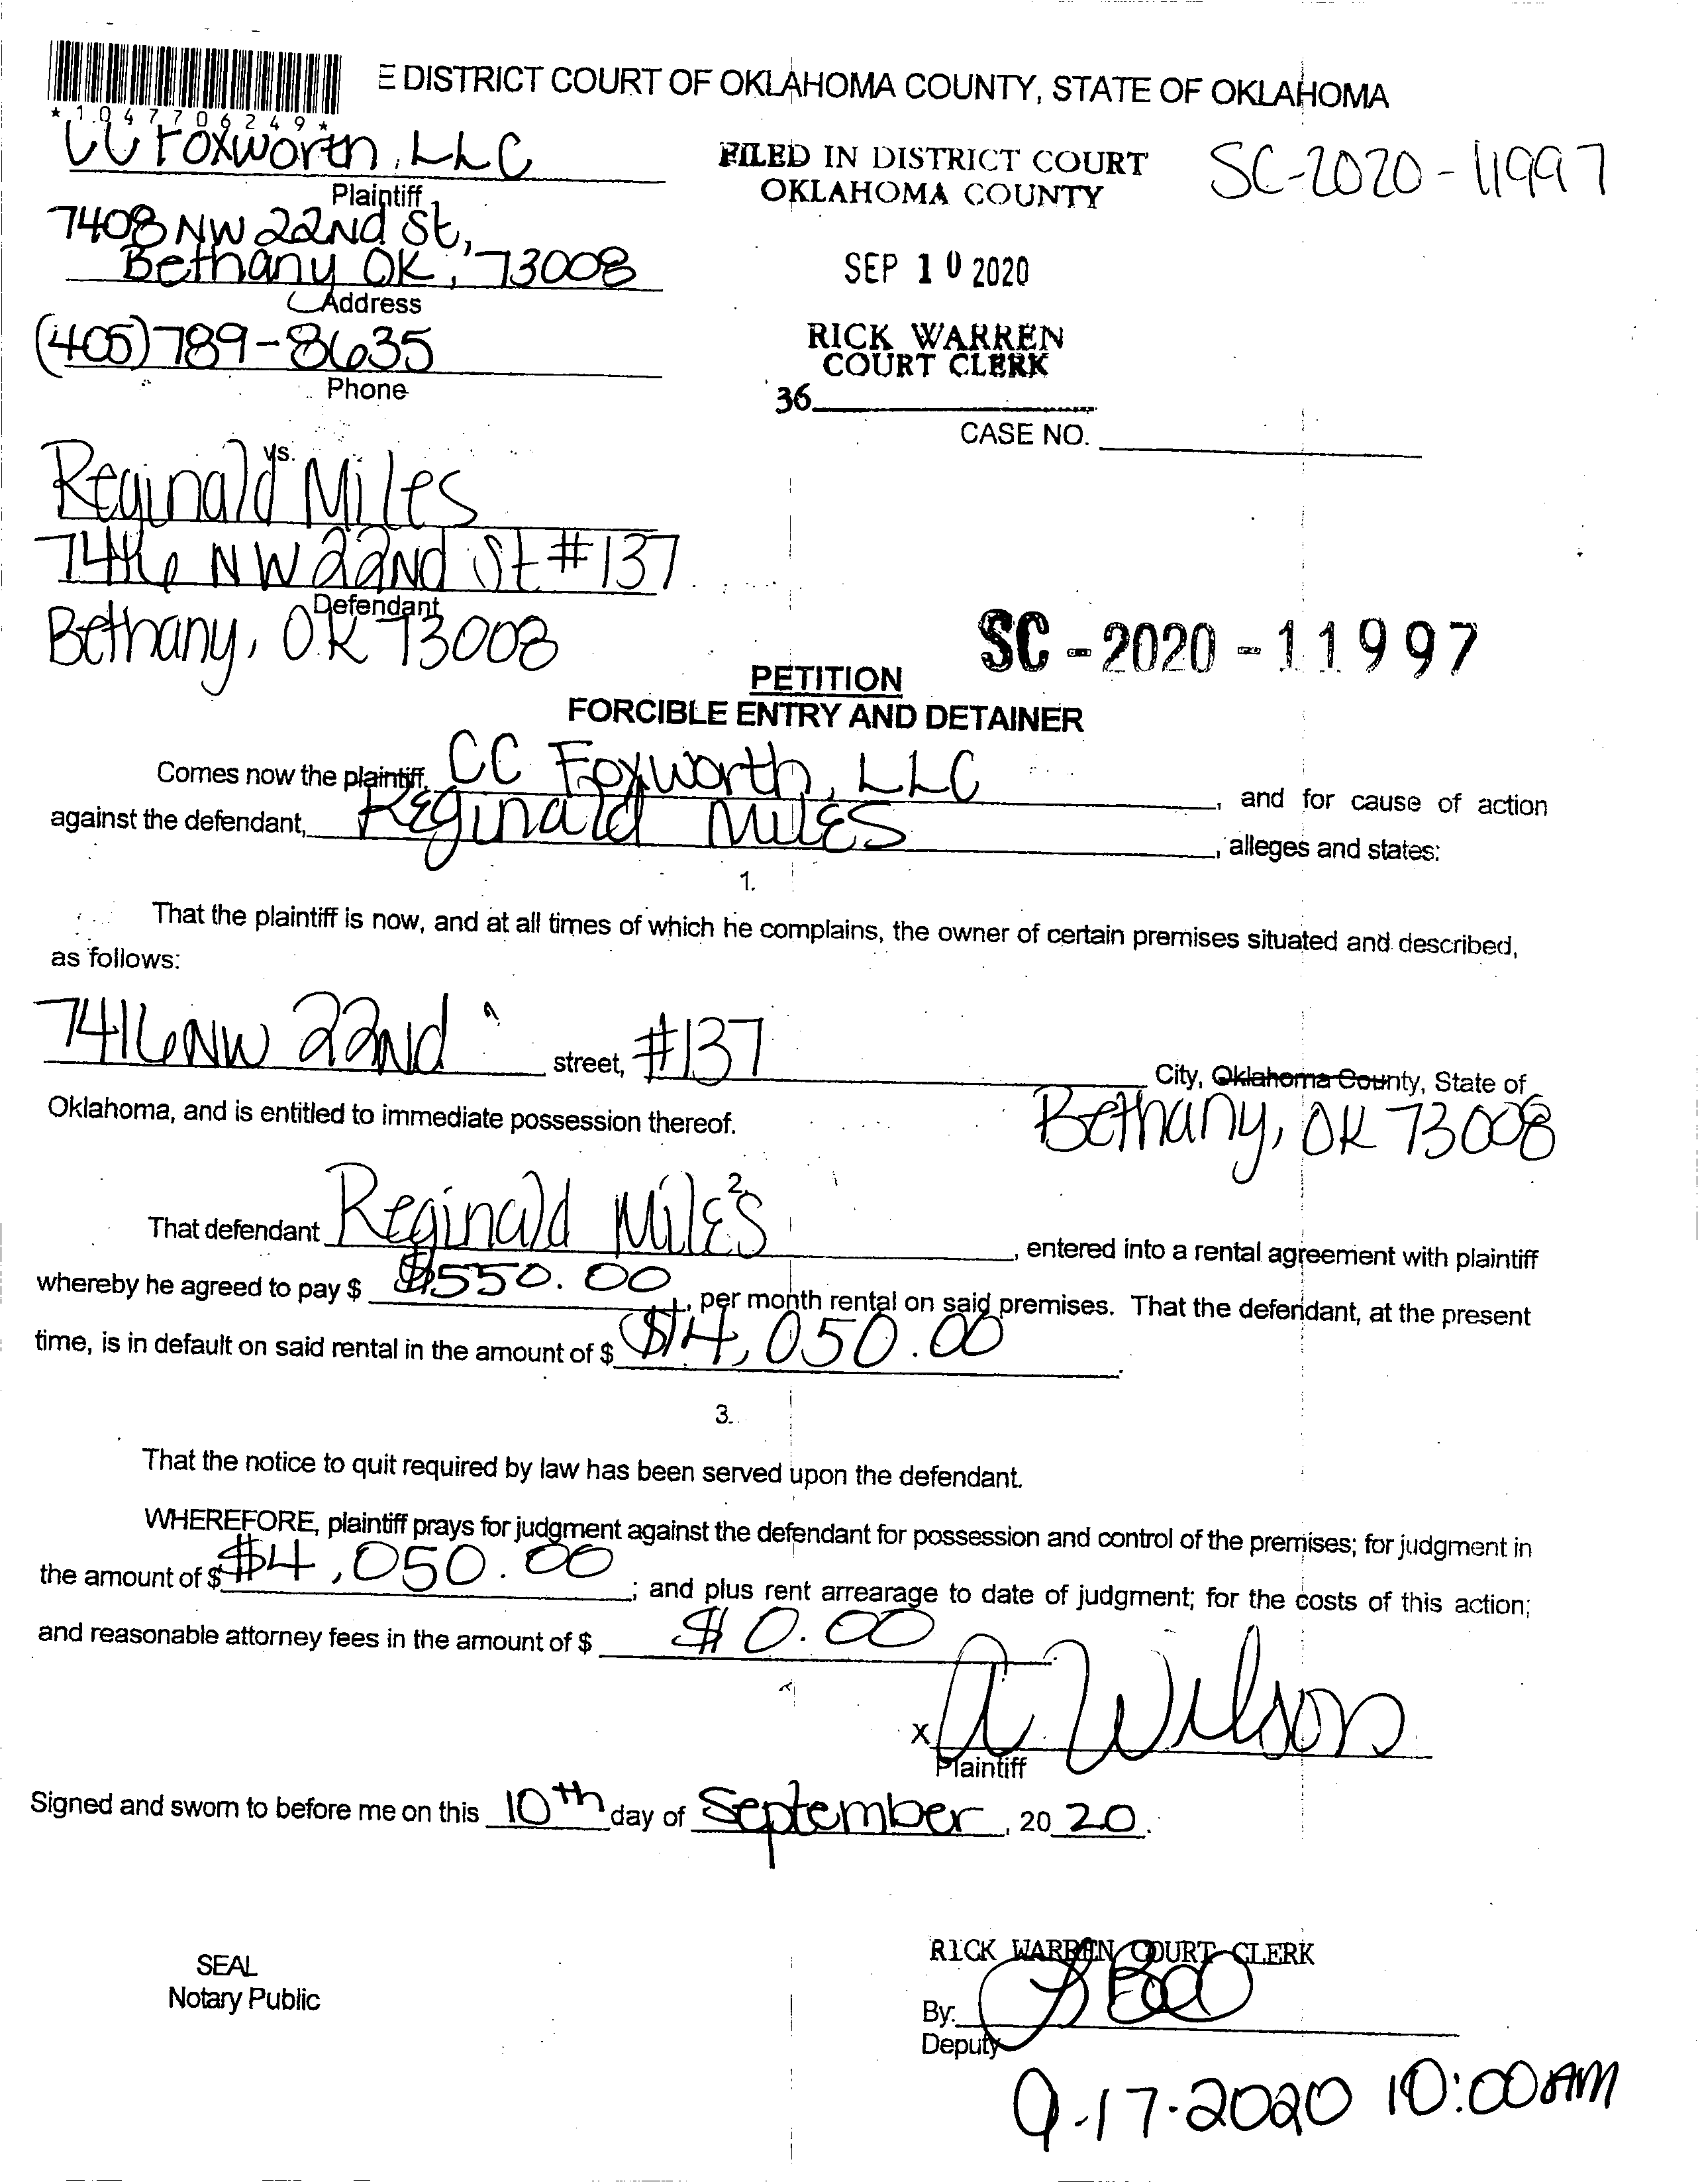 E DISTRICT COURT OF OKLAHOMA COUNTY, STATE OF OKLAHOMA
*1047706249*
CC Foxworth, LLC
Plaintiff
7408 NW 22nd St,
Bethany OK, 73008
Address
(405) 789-8635
Phone
FILED IN DISTRICT COURT
OKLAHOMA COUNTY
SEP 10 2020
RICK WARREN
COURT CLERK
36
SC-2020-11997
CASE NO.
vs.
Reginald Miles
7416 NW 22nd St #137
Defendant
Bethany, OK 73008
SC-2020-11997
PETITION
FORCIBLE ENTRY AND DETAINER
Comes now the plaintiff, CC Foxworth, LLC, and for cause of action
against the defendant, Reginald Miles, alleges and states:
1.
That the plaintiff is now, and at all times of which he complains, the owner of certain premises situated and described,
as follows:
7416 NW 22nd street, #137 City, Oklahoma County, State of
Oklahoma, and is entitled to immediate possession thereof. Bethany, OK 73008
2.
That defendant Reginald Miles, entered into a rental agreement with plaintiff
whereby he agreed to pay $ $550.00, per month rental on said premises. That the defendant, at the present
time, is in default on said rental in the amount of $ $4,050.00.
3.
That the notice to quit required by law has been served upon the defendant.
WHEREFORE, plaintiff prays for judgment against the defendant for possession and control of the premises; for judgment in
the amount of $ $4,050.00; and plus rent arrearage to date of judgment; for the costs of this action;
and reasonable attorney fees in the amount of $ $0.00.
X A Wilson
Plaintiff
Signed and sworn to before me on this 10th day of September, 2020.
SEAL
Notary Public
RICK WARREN COURT CLERK
By:
Deputy
9-17-2020 10:00AM